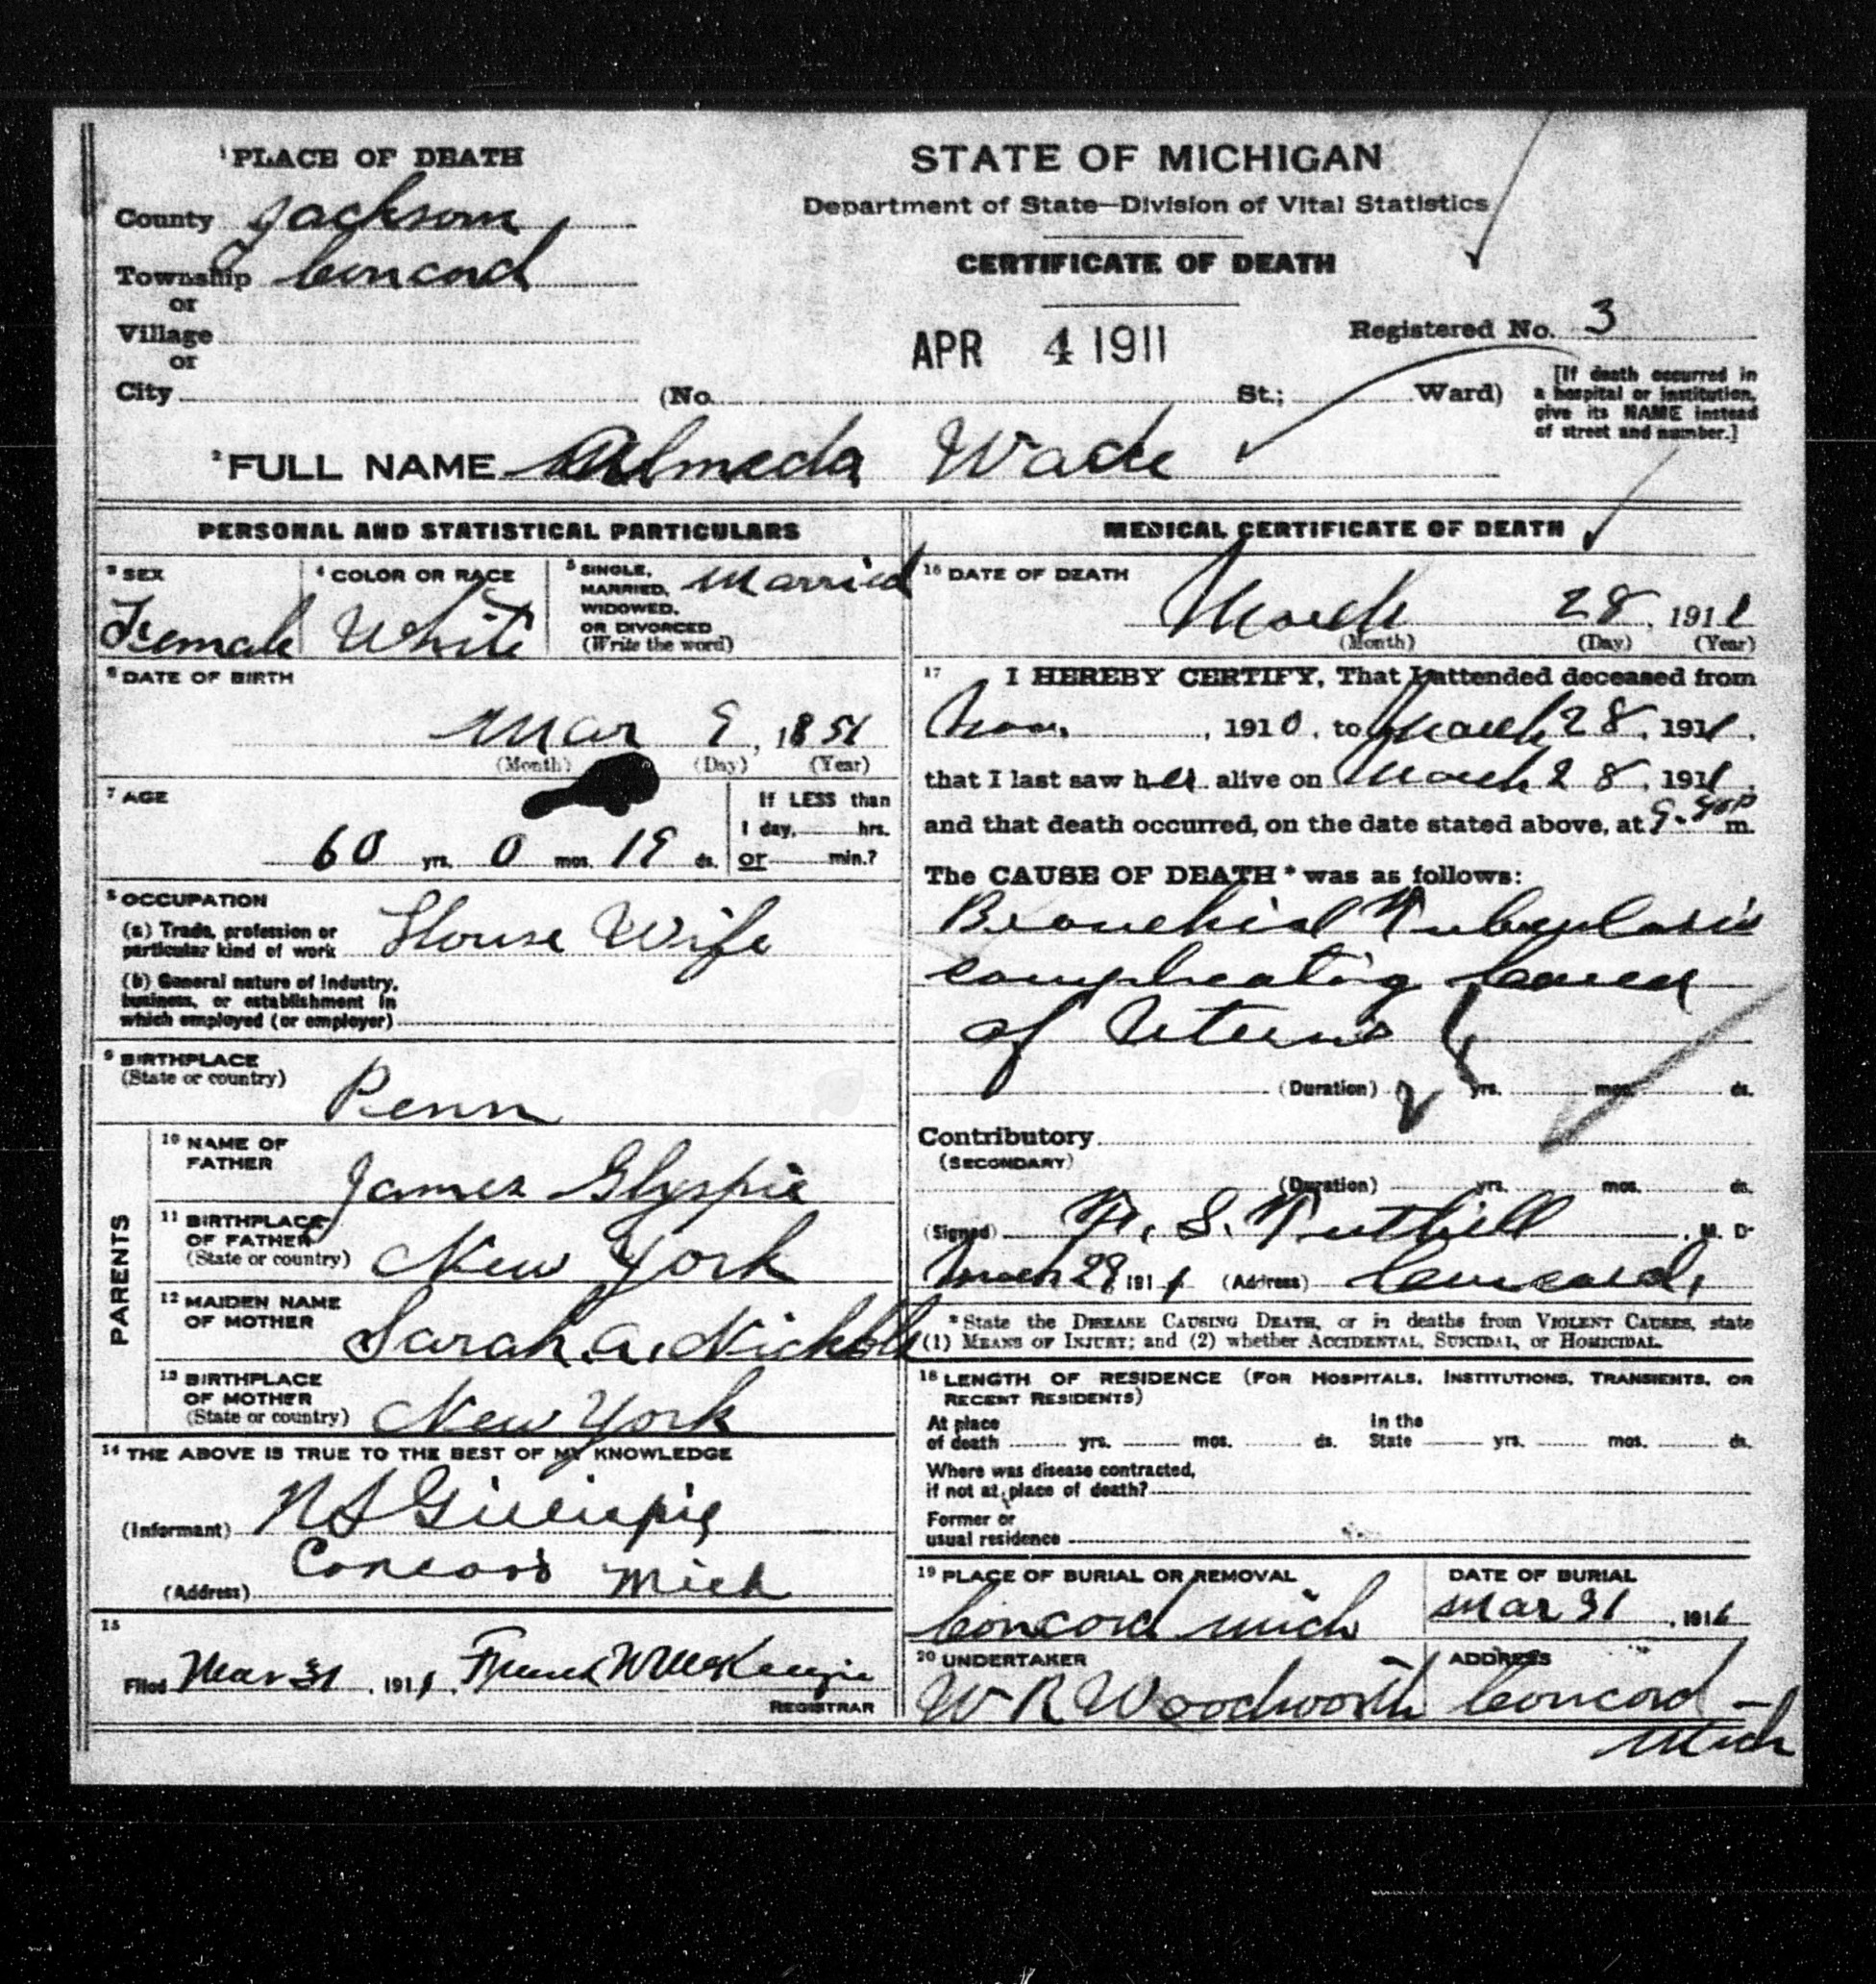 ¹PLACE OF DEATH
County Jackson
Township Concord
or
Village
or
City (No. St.; Ward)
STATE OF MICHIGAN
Department of State—Division of Vital Statistics
CERTIFICATE OF DEATH
APR 4 1911
Registered No. 3
[If death occurred in
a hospital or institution,
give its NAME instead
of street and number.]
²FULL NAME Almeda Wade
PERSONAL AND STATISTICAL PARTICULARS
³SEX
Female
⁴COLOR OR RACE
White
⁵SINGLE,
MARRIED,
WIDOWED,
OR DIVORCED
(Write the word)
Married
⁶DATE OF BIRTH
Mar 9, 1851
(Month) (Day) (Year)
⁷AGE
60 yrs. 0 mos. 19 ds.
If LESS than
1 day, hrs.
or min.?
⁸OCCUPATION
(a) Trade, profession or
particular kind of work House Wife
(b) General nature of industry,
business, or establishment in
which employed (or employer)
⁹BIRTHPLACE
(State or country)
Penn
PARENTS
¹⁰NAME OF
FATHER
James Glyspie
¹¹BIRTHPLACE
OF FATHER
(State or country) New York
¹²MAIDEN NAME
OF MOTHER
Sarah. A.
¹³BIRTHPLACE
OF MOTHER
(State or country) New York
¹⁴THE ABOVE IS TRUE TO THE BEST OF MY KNOWLEDGE
(Informant) N S Gillespie
(Address) Concord Mich
¹⁵
Filed Mar 31, 1911, Frank W McKenzie
REGISTRAR
MEDICAL CERTIFICATE OF DEATH
¹⁶DATE OF DEATH
March 28, 1911
(Month) (Day) (Year)
¹⁷ I HEREBY CERTIFY, That I attended deceased from
Nov., 1910, to March 28, 1911,
that I last saw her alive on March 28, 1911,
and that death occurred, on the date stated above, at 9. m.
The CAUSE OF DEATH* was as follows:
Bronchial Tuberculosis
complicating Cancer
of Uterus
(Duration) 2 yrs. mos. ds.
Contributory
(SECONDARY)
(Duration) yrs. mos. ds.
(Signed) F. S. Tuthill, M. D.
March 29 1911 (Address) Concord,
*State the DISEASE CAUSING DEATH, or in deaths from VIOLENT CAUSES, state
(1) MEANS OF INJURY; and (2) whether ACCIDENTAL, SUICIDAL, or HOMICIDAL.
¹⁸LENGTH OF RESIDENCE (FOR HOSPITALS, INSTITUTIONS, TRANSIENTS, OR
RECENT RESIDENTS)
At place
of death yrs. mos. ds.
In the
State yrs. mos. ds.
Where was disease contracted,
if not at place of death?
Former or
usual residence
¹⁹PLACE OF BURIAL OR REMOVAL
Concord Mich
DATE OF BURIAL
Mar 31, 1911
²⁰UNDERTAKER
W R Woodworth
ADDRESS
Concord -
Mich